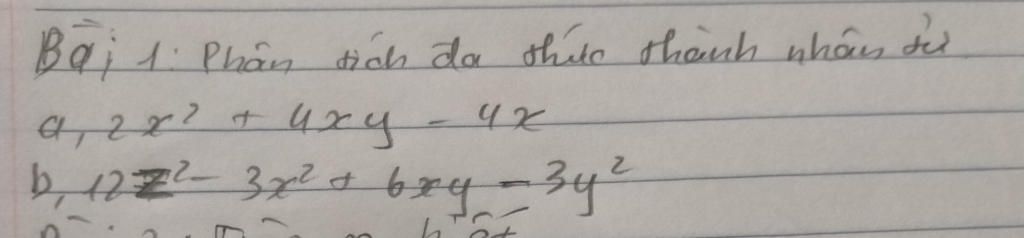 Bài 1: Phân tích đa thức thành nhân tử
a, 2x² + 4xy - 4x
b, 12z² - 3x² + 6xy - 3y²